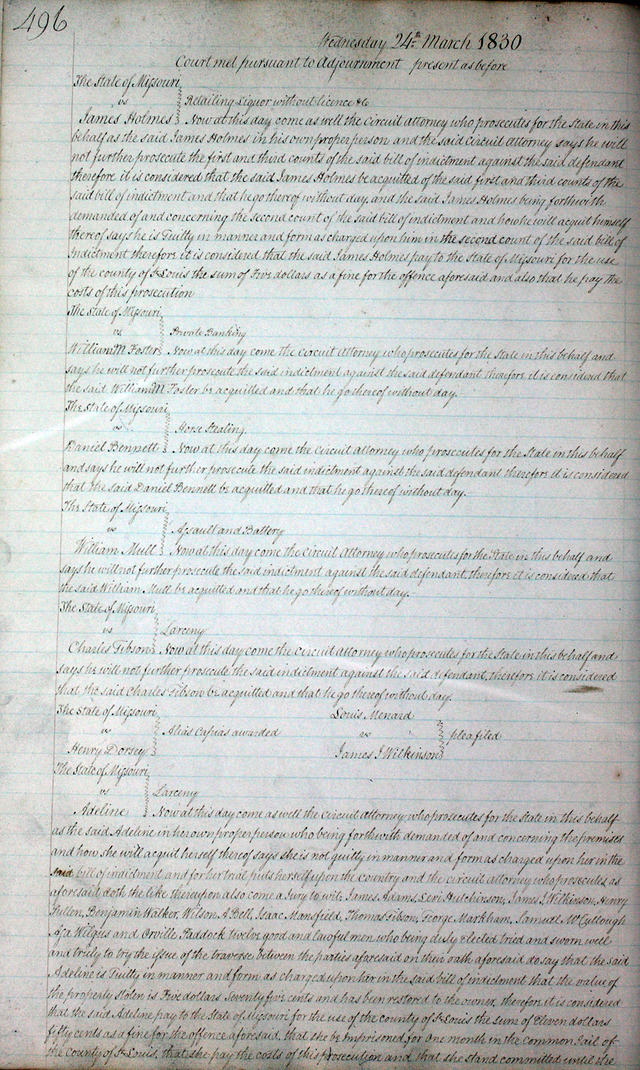 496
Wednesday 24th March 1830
Court met pursuant to Adjournment present as before
The State of Missouri
vs
Retailing Liquor without licence &c
James Holmes Now at this day come as well the circuit attorney who prosecutes for the State in this
behalf as the said James Holmes in his own proper person and the said Circuit Attorney says he will
not further prosecute the first and third counts of the said bill of indictment against the said defendant
therefore it is considered that the said James Holmes be acquitted of the said first and third counts of the
said bill of indictment and that he go thereof without day, and the said James Holmes being forthwith
demanded of and concerning the second count of the said bill of indictment and how he will acquit himself
thereof says he is Guilty in manner and form as charged upon him in the second count of the said bill of
Indictment therefore it is considered that the said James Holmes pay to the State of Missouri for the use
of the county of St Louis the sum of Five dollars as a fine for the offence aforesaid and also that he pay the
costs of this prosecution
The State of Missouri
vs
Private Banking
William M Foster Now at this day come the circuit Attorney who prosecutes for the State in this behalf and
says he will not further prosecute the said indictment against the said defendant therefore it is considered that
the said William M Foster be acquitted and that he go thereof without day.
The State of Missouri
vs
Horse Stealing
Daniel Bennett Now at this day come the circuit Attorney who prosecutes for the State in this behalf
and says he will not further prosecute the said indictment against the said defendant therefore it is considered
that the said Daniel Bennett be acquitted and that he go thereof without day.
The State of Missouri
vs
Assault and Battery
William Mull Now at this day come the circuit Attorney who prosecutes for the State in this behalf and
says he will not further prosecute the said indictment against the said defendant, therefore it is considered that
the said William Mull be acquitted and that he go thereof without day.
The State of Missouri
vs
Larceny
Charles Gibson Now at this day come the circuit attorney who prosecutes for the State in this behalf and
says he will not further prosecute the said indictment against the said defendant, therefore it is considered
that the said Charles Gibson be acquitted and that he go thereof without day.
The State of Missouri
vs
Alias Capias awarded
Henry Dorsey
Louis Menard
vs
plea filed
James J Wilkinson
The State of Missouri
vs
Larceny
Adeline Now at this day come as well the circuit Attorney who prosecutes for the State in this behalf
as the said Adeline in her own proper person who being forthwith demanded of and concerning the premises
and how she will acquit herself thereof says she is not guilty in manner and form as charged upon her in the
said bill of indictment and for her trial puts herself upon the Country and the circuit attorney who prosecutes as
aforesaid doth the like thereupon also come a Jury to wit, James Adams, Levi Hutchinson, James J Wilkinson, Henry
Benjamin Walker, Wilson A Bell, Isaac Mansfield, Thomas Gibson, George Markham, Samuel McCullough
Asa Wilgus and Orville Paddock twelve good and lawful men who being duly elected tried and sworn well
and truly to try the issue of the traverse between the parties aforesaid on their oath aforesaid do say that the said
Adeline is Guilty in manner and form as charged upon her in the said bill of indictment that the value of
the property stolen is Five dollars Seventy five cents and has been restored to the owner, therefore it is considered
that the said Adeline pay to the State of Missouri for the use of the county of St Louis the sum of Eleven dollars
fifty cents as a fine for the offence aforesaid, that she be imprisoned for one month in the common Jail of
the county of St Louis, that she pay the costs of this prosecution and that she stand committed until the